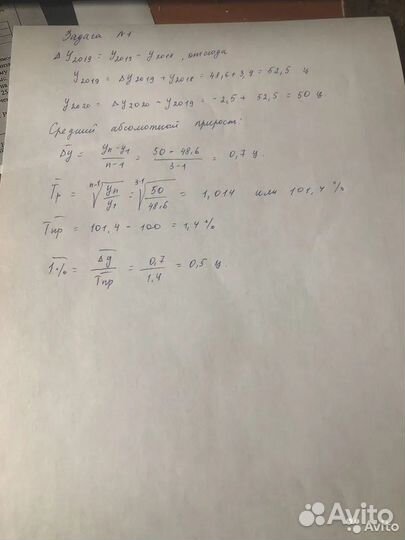 Задача №1
Δy2019 = y2019 - y2018, отсюда
y2019 = Δy2019 + y2018 = 48,6 + 3,9 = 52,5 ц
y2020 = Δy2020 - y2019 = -2,5 + 52,5 = 50 ц.
Средний абсолютный прирост:
Δ̅y̅ = yn-y1/n-1 = 50-48.6/3-1 = 0,7 ц.
T̅р = ⁿ⁻¹√yn/y1 = ³⁻¹√50/48,6 = 1,014 или 101,4 %
T̅пр = 101,4 - 100 = 1,4 %
1̅% = Δ̅y̅/T̅пр = 0,7/1,4 = 0,5 ц.
Avito
Avito